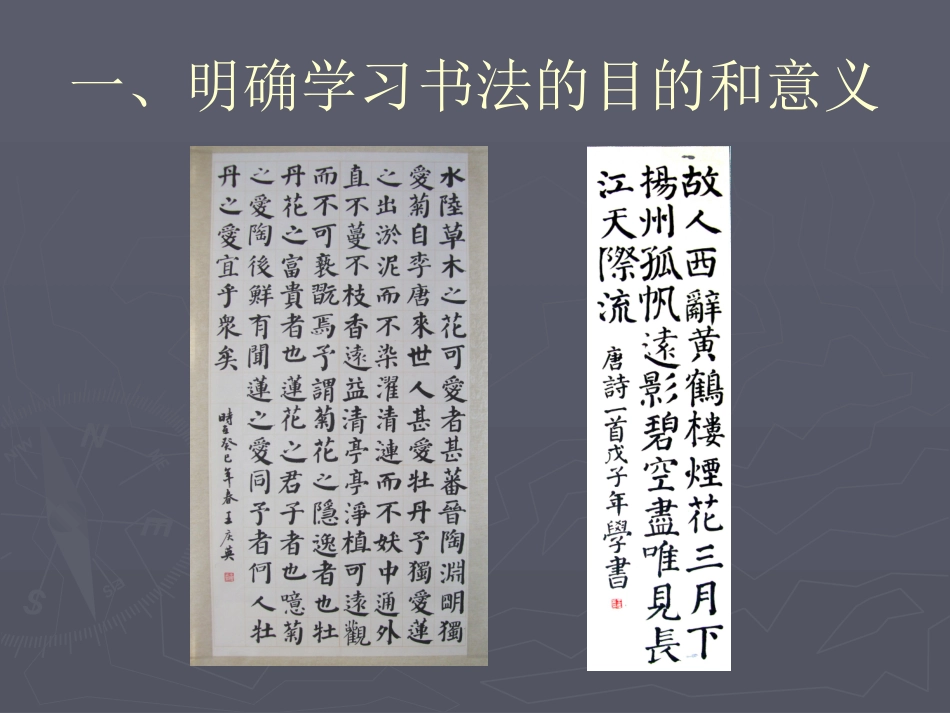 一、明确学习书法的目的和意义
水陸草木之花可愛者甚蕃晉陶淵明獨
愛菊自李唐來世人甚愛牡丹予獨愛蓮
之出淤泥而不染濯清漣而不妖中通外
直不蔓不枝香遠益清亭亭淨植可遠觀
而不可褻翫焉予謂菊花之隱逸者也牡
丹花之富貴者也蓮花之君子者也噫菊
之愛陶後鮮有聞蓮之愛同予者何人牡
丹之愛宜乎衆矣
時在癸巳年春王庆英
故人西辭黃鶴樓煙花三月下
揚州孤帆遠影碧空盡唯見長
江天際流
唐詩一首戊子年學書